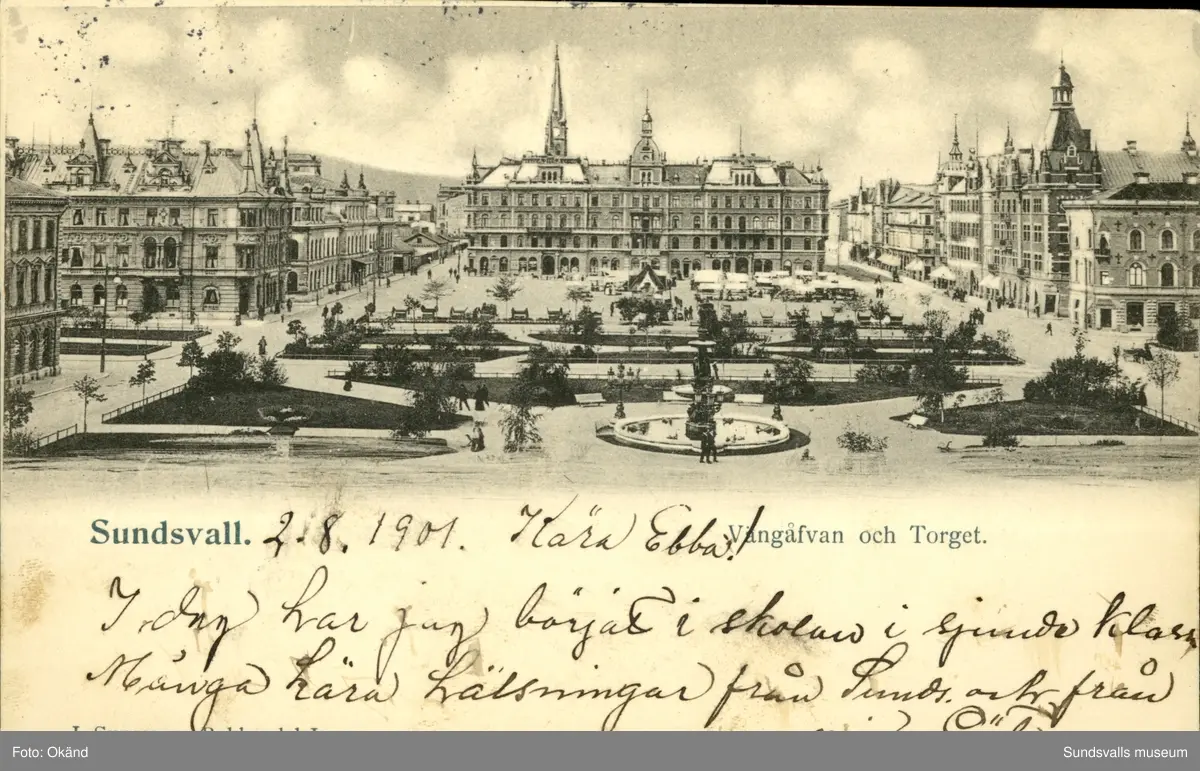 Sundsvall. 2-8. 1901. Kära Ebba! Vängåfvan och Torget.
I dag har jag börjat i skolan i sjunde klass
Många kära hälsningar från Sunds. och från
Foto: Okänd
Sundsvalls museum